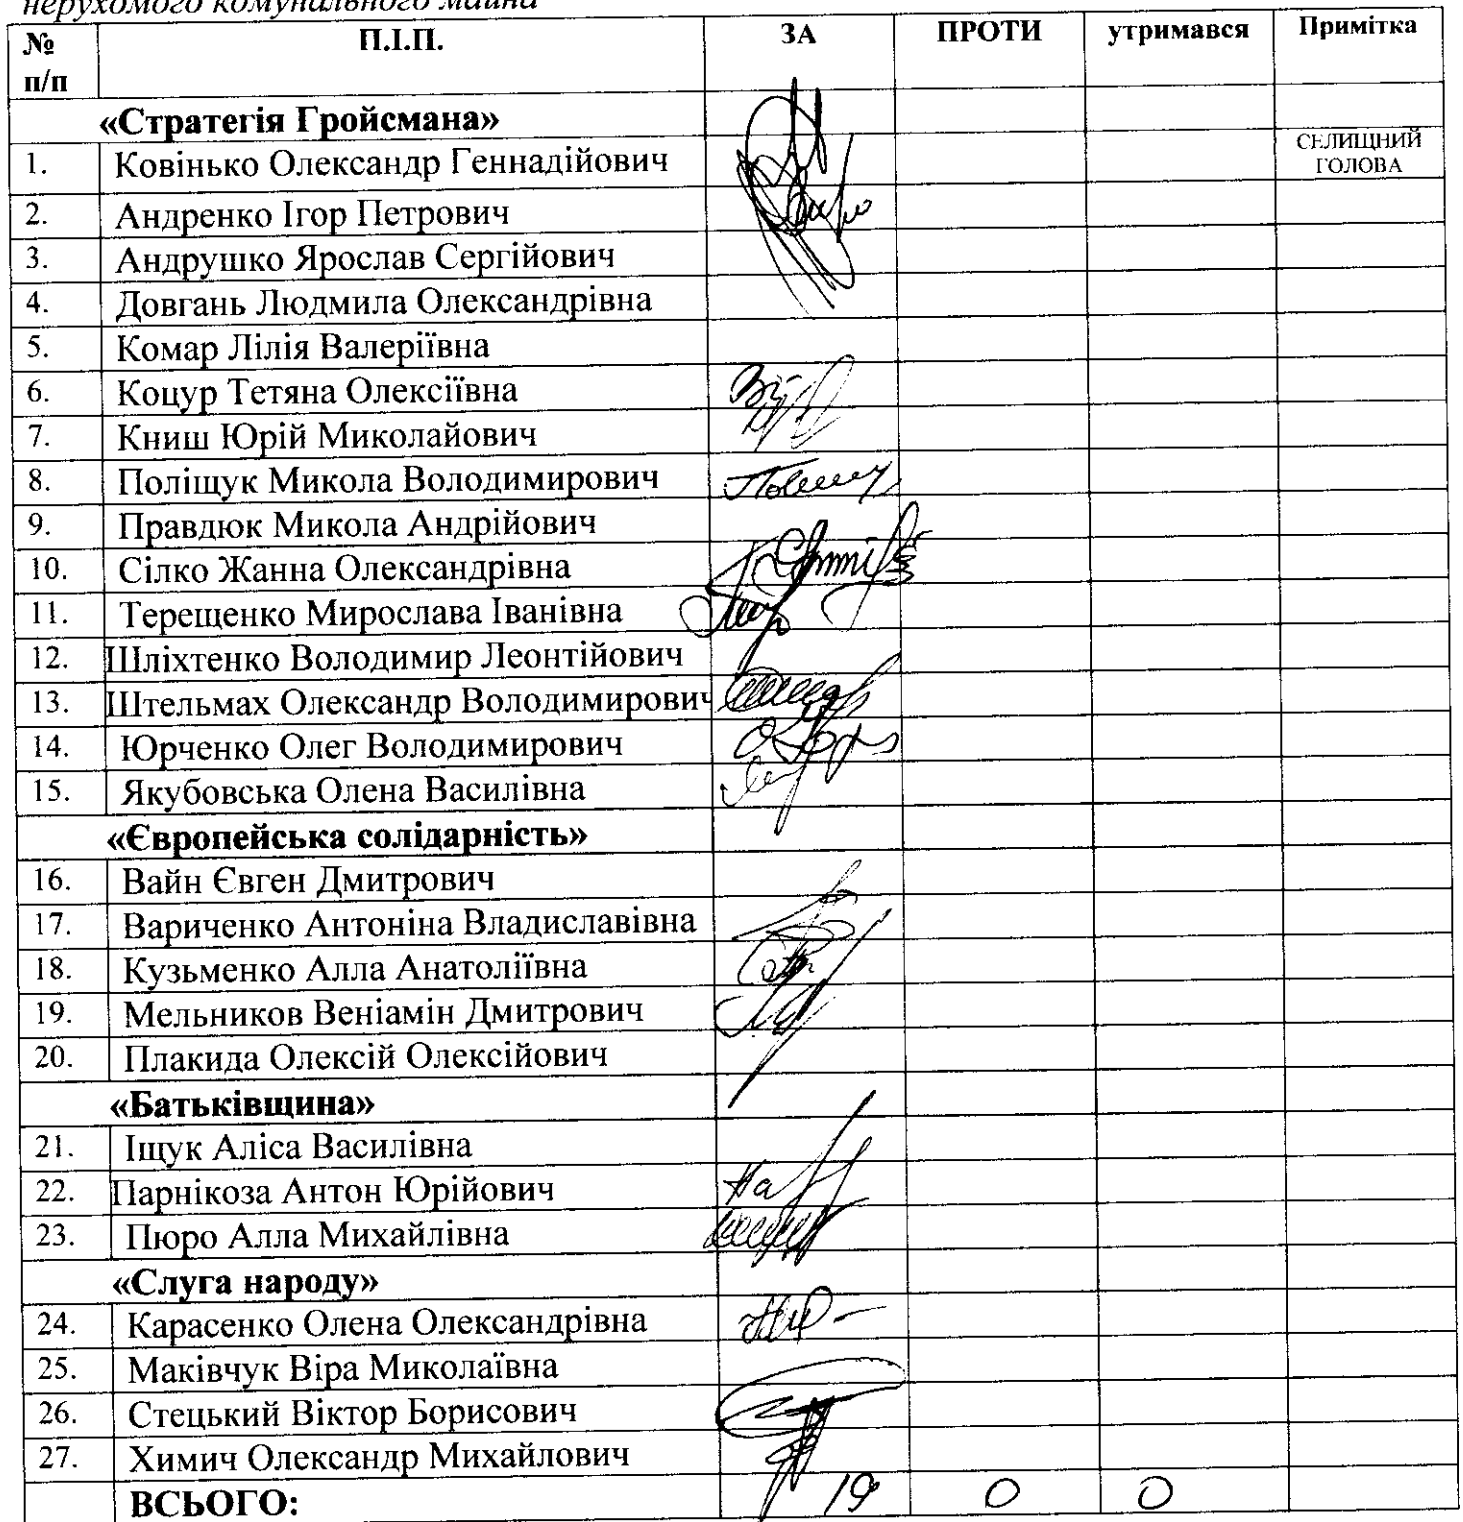 нерухомого комунального майна
№ п/п П.І.П. ЗА ПРОТИ утримався Примітка
«Стратегія Гройсмана»
1. Ковінько Олександр Геннадійович СЕЛИЩНИЙ ГОЛОВА
2. Андренко Ігор Петрович
3. Андрушко Ярослав Сергійович
4. Довгань Людмила Олександрівна
5. Комар Лілія Валеріївна
6. Коцур Тетяна Олексіївна
7. Книш Юрій Миколайович
8. Поліщук Микола Володимирович
9. Правдюк Микола Андрійович
10. Сілко Жанна Олександрівна
11. Терещенко Мирослава Іванівна
12. Шліхтенко Володимир Леонтійович
13. Штельмах Олександр Володимирович
14. Юрченко Олег Володимирович
15. Якубовська Олена Василівна
«Європейська солідарність»
16. Вайн Євген Дмитрович
17. Вариченко Антоніна Владиславівна
18. Кузьменко Алла Анатоліївна
19. Мельников Веніамін Дмитрович
20. Плакида Олексій Олексійович
«Батьківщина»
21. Іщук Аліса Василівна
22. Парнікоза Антон Юрійович
23. Пюро Алла Михайлівна
«Слуга народу»
24. Карасенко Олена Олександрівна
25. Маківчук Віра Миколаївна
26. Стецький Віктор Борисович
27. Химич Олександр Михайлович
ВСЬОГО: 19 0 0